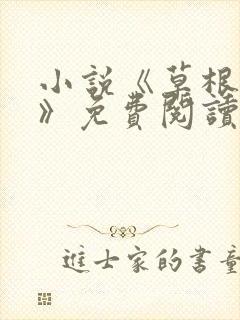 小說《草根
》免費閱讀
進士家的書童